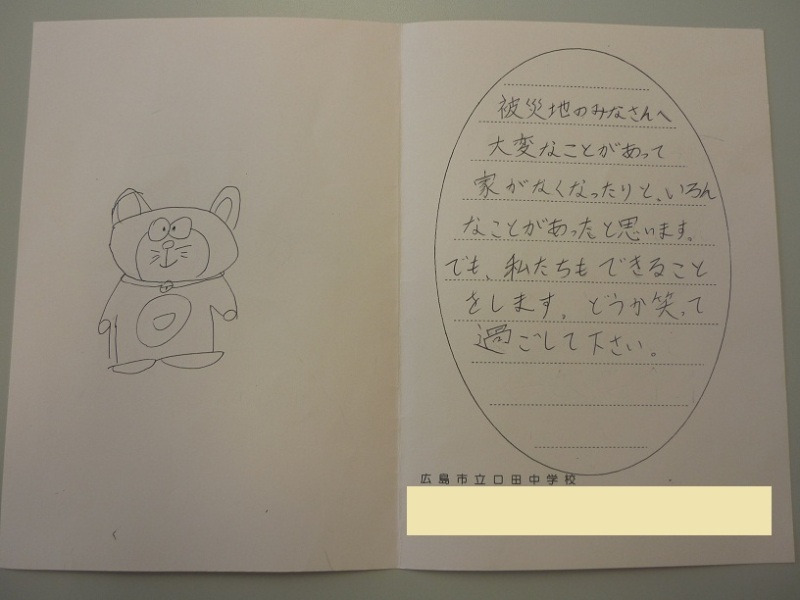 被災地のみなさんへ
大変なことがあって
家がなくなったりと、いろん
なことがあったと思います。
でも、私たちもできること
をします。どうか笑って
過ごして下さい。
広島市立口田中学校